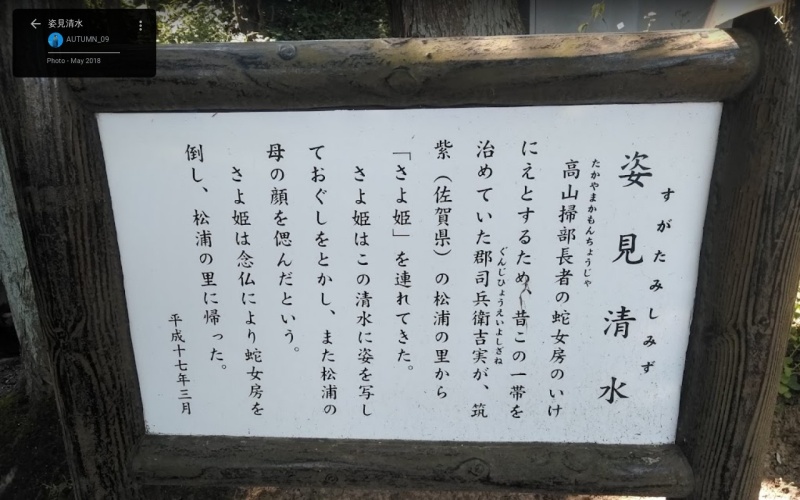 姿見清水
AUTUMN_09
Photo - May 2018
すがたみしみず
姿見清水
たかやまかもんちょうじゃ
高山掃部長者の蛇女房のいけ
にえとするため、昔この一帯を
ぐんじひょうえいよしざね
治めていた郡司兵衛吉実が、筑
紫（佐賀県）の松浦の里から
「さよ姫」を連れてきた。
さよ姫はこの清水に姿を写し
ておぐしをとかし、また松浦の
母の顔を偲んだという。
さよ姫は念仏により蛇女房を
倒し、松浦の里に帰った。
平成十七年三月